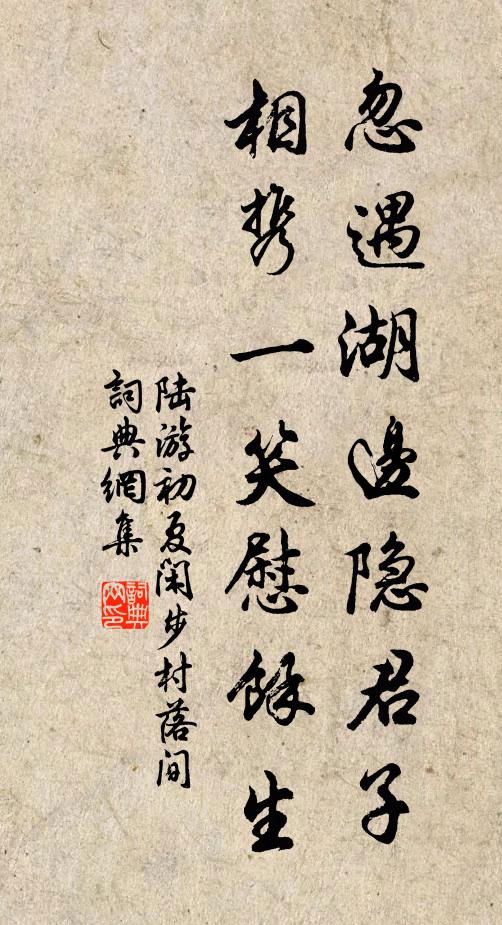 忽遇湖邊隐君子
相携一笑慰餘生
陆游初夏闲步村落间
詞典網集
詞典网印